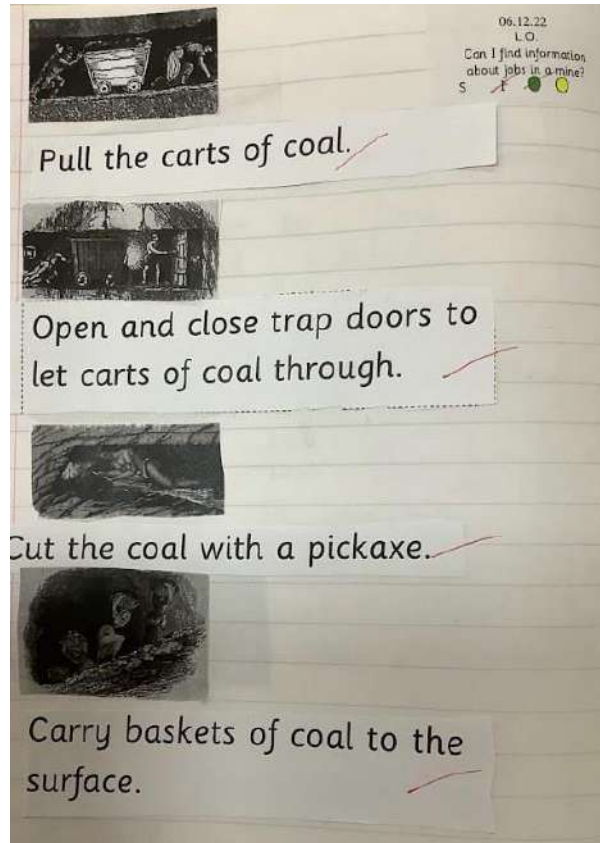 06.12.22
L.O.
Can I find information
about jobs in a mine?
S I
Pull the carts of coal.
Open and close trap doors to
let carts of coal through.
Cut the coal with a pickaxe.
Carry baskets of coal to the
surface.